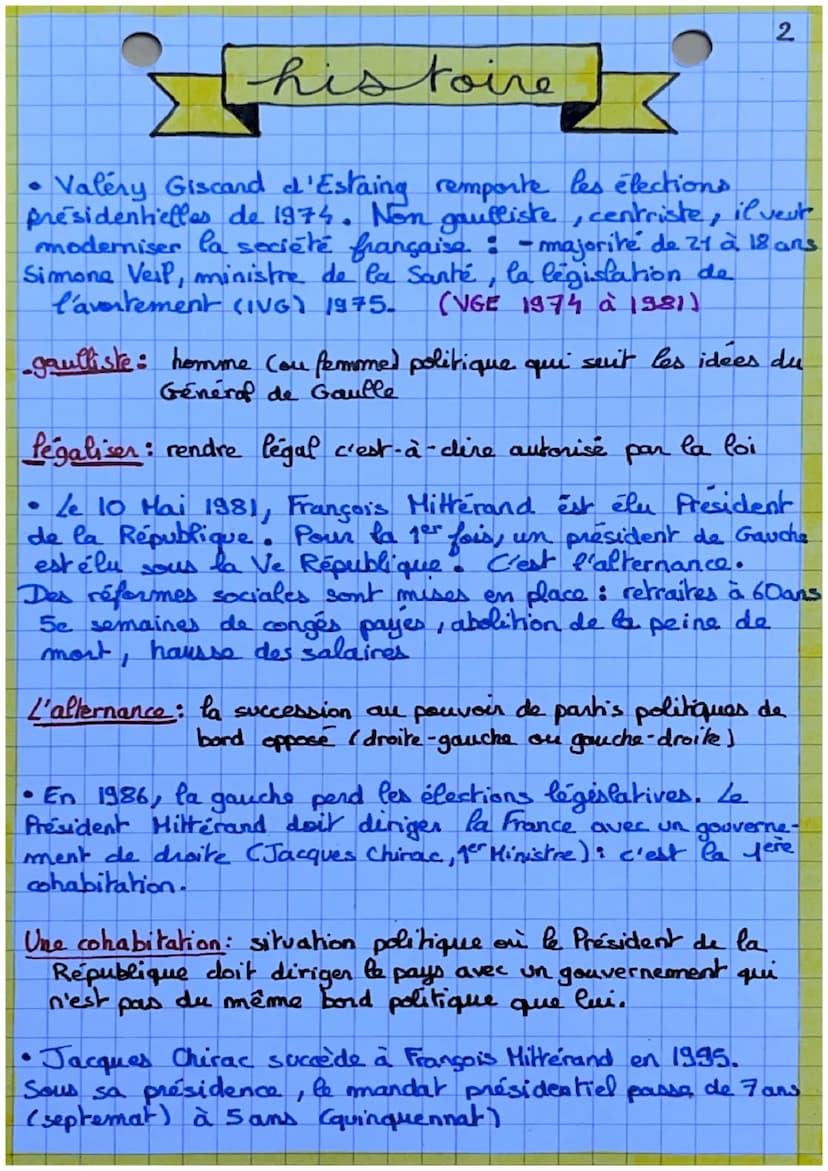 2
histoire
• Valéry Giscard d'Estaing remporte les élections
présidentielles de 1974. Non gaulliste, centriste, il veut
moderniser la société française : - majorité de 21 à 18 ans
Simone Veil, ministre de la Santé, la législation de
l'avortement (IVG) 1975. (VGE 1974 à 1981)
gaulliste : homme (ou femme) politique qui suit les idées du
Général de Gaulle
légaliser : rendre légal c'est-à-dire autorisé par la loi
• Le 10 Mai 1981, François Mittérand est élu Président
de la République. Pour la 1er fois, un président de Gauche
est élu sous la Ve République. C'est l'alternance.
Des réformes sociales sont mises en place : retraites à 60ans
5e semaines de congés payés, abolition de la peine de
mort, hausse des salaires
L'alternance : la succession au pouvoir de partis politiques de
bord opposé (droite-gauche ou gauche-droite)
• En 1986, la gauche perd les élections législatives. Le
Président Mittérand doit diriger la France avec un gouverne-
ment de droite (Jacques Chirac, 1er Ministre) : c'est la 1ère
cohabitation.
Une cohabitation : situation politique où le Président de la
République doit diriger le pays avec un gouvernement qui
n'est pas du même bord politique que lui.
• Jacques Chirac succède à François Mittérand en 1995.
Sous sa présidence, le mandat présidentiel passe de 7 ans
(septemat) à 5 ans (quinquennat)